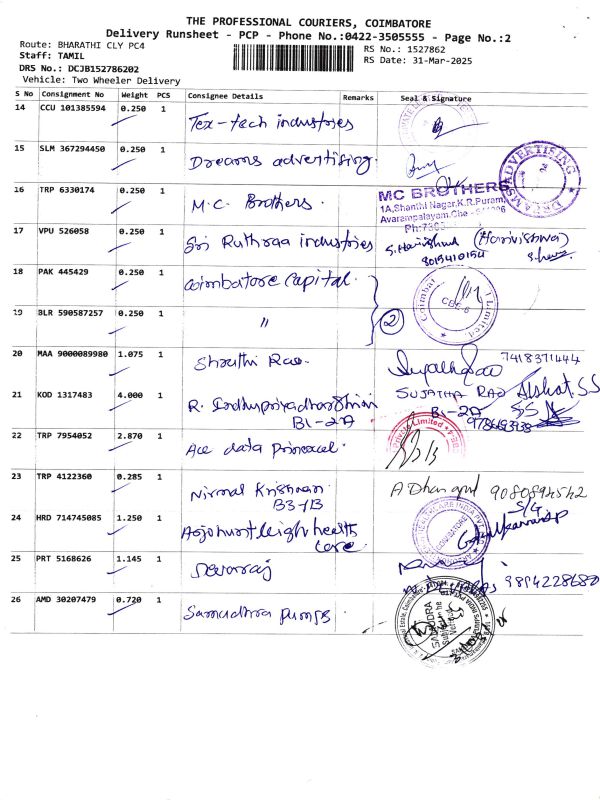 THE PROFESSIONAL COURIERS, COIMBATORE
Delivery Runsheet - PCP - Phone No.:0422-3505555 - Page No.:2
Route: BHARATHI CLY PC4
RS No.: 1527862
Staff: TAMIL
RS Date: 31-Mar-2025
DRS No.: DCJB152786202
Vehicle: Two Wheeler Delivery
S No Consignment No Weight PCS Consignee Details Remarks Seal & Signature
14 CCU 101385594 0.250 1 Tex-tech industries
15 SLM 367294450 0.250 1 Dreams advertising.
DREAMS ADVERTISING
16 TRP 6330174 0.250 1 M.C. Brothers.
MC BROTHERS
1A,Shanthi Nagar,K.R.Puram,
Avarampalayam,Cbe -
17 VPU 526058 0.250 1 Sri Ruthraa industries
(Harivishwa)
18 PAK 445429 0.250 1 Coimbatore Capital.
Coimbat Limited
CBE-6
19 BLR 590587257 0.250 1 "
2
20 MAA 9000089980 1.075 1 Shruthi Rao.
7418371444
SUJATHA RAO
B1-2A
21 KOD 1317483 4.000 1 R. Indhupriyadharshini
B1-2A
22 TRP 7954052 2.870 1 Ace data
Limited
23 TRP 4122360 0.285 1 Nirmal Krishnan
B3-1B
9080894542
24 HRD 714745085 1.250 1 health care
25 PRT 5168626 1.145 1 Devaraj
9894228680
26 AMD 30207479 0.720 1 Samudhra pumps